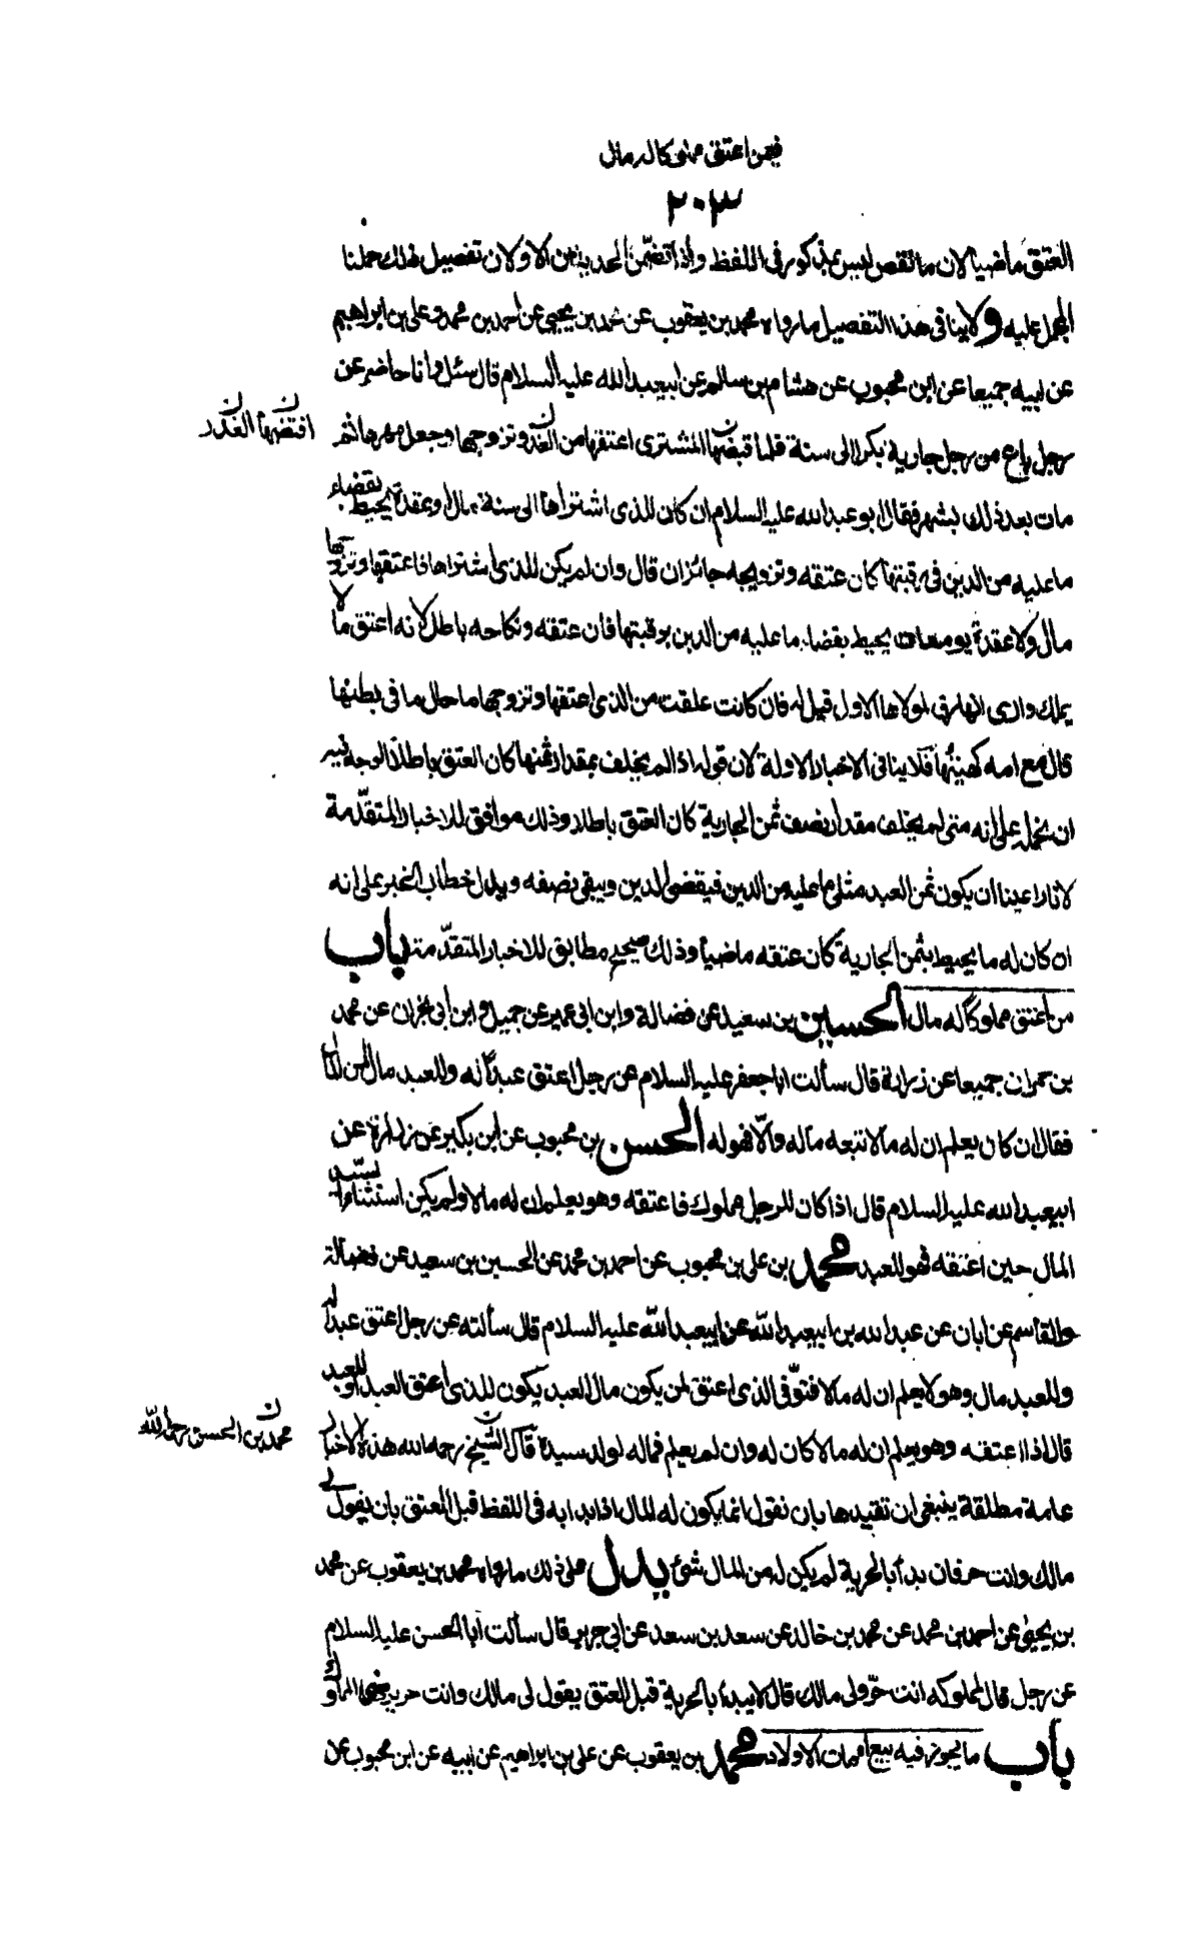 فيمن اعتق مملوكا له مال
٢٠٣
العتق ماضيا لان ما نقص ليس بمذكور فى اللفظ واذا تضمّن الحديث الاولان تفصيل ذلك حملنا
المجمل عليه ولا ينافى هذا التفصيل ما رواه محمد بن يعقوب عن محمد بن يحيى عن احمد بن محمد وعلى بن ابراهيم
عن ابيه جميعا عن ابن محبوب عن هشام بن سالم عن ابيعبد الله عليه السلام قال سئل وانا حاضر عن
رجل باع من رجل جارية بكرا الى سنة فلما قبضها المشترى اعتقها من الغد وتزوجها وجعل مهرها عتقها ثم
افتضها ن الغد ن
مات بعد ذلك بشهر فقال ابو عبد الله عليه السلام ان كان للذى اشتراها الى سنة مال او عقدة يحيط بقضاء
ما عليه من الدين فى رقبتها كان عتقه وتزويجه جائزان قال وان لم يكن للذى اشتراها فاعتقها وتزوجها
مال ولا عقدة يوم مات يحيط بقضاء ما عليه من الدين برقبتها فان عتقه ونكاحه باطل لانه اعتق ما لا
يملك وارى انها رق لمولاها الاول قيل له فان كانت علقت من الذى اعتقها وتزوجها ما حال ما فى بطنها
قال مع امه كهيئتها فلا ينافى الاخبار الاولة لان قوله اذا لم يخلف بمقدار ثمنها كان العتق باطلا الوجه فيه
ان نحمله على انه متى لم يخلف مقدار نصف ثمن الجارية كان العتق باطلا وذلك موافق للاخبار المتقدّمة
لانا راعينا ان يكون ثمن العبد مثلى ما عليه من الدين فيقضى الدين ويبقى نصفه ويدل خطاب الخبر على انه
ان كان له ما يحيط بثمن الجارية كان عتقه ماضيا وذلك صحيح مطابق للاخبار المتقدّمة باب
من اعتق مملوكا له مال الحسين بن سعيد عن فضالة وابن ابى عمير عن جميل وابن ابى نجران عن محمد
بن حمران جميعا عن زرارة قال سألت ابا جعفر عليه السلام عن رجل اعتق عبدا له وللعبد مال لمن المال
فقال ان كان يعلم ان له مالا تبعه ماله والّا فهو له الحسن بن محبوب عن ابن بكير عن زرارة عن
ابيعبد الله عليه السلام قال اذا كان للرجل مملوك فاعتقه وهو يعلم ان له مالا ولم يكن استثناء السيّد
المال حين اعتقه فهو للعبد محمد بن على بن محبوب عن احمد بن محمد عن الحسين بن سعيد عن فضالة
والقاسم عن ابان عن عبد الله بن ابيعبد الله عن ابيعبد الله عليه السلام قال سألته عن رجل اعتق عبدا له
وللعبد مال وهو لا يعلم ان له مالا فتوّفى الذى اعتق لمن يكون مال العبد يكون للذى اعتق العبد او للعبد
قال اذا اعتقه وهو يعلم ان له مالا كان له وان لم يعلم فماله لولد سيده قال الشيخ ن رحمه الله هذه الاخبار
محمد بن الحسن رحمه الله ن
عامة مطلقة ينبغى ان تقيدها بان نقول انما يكون له المال اذا بدا به فى اللفظ قبل العتق بان يقول لى
مالك وانت حر فان بدأ بالحرية لم يكن له من المال شئ يدل على ذلك ما رواه محمد بن يعقوب عن محمد
بن يحيى عن احمد بن محمد عن محمد بن خالد عن سعد بن سعد عن ابى جرير قال سألت ابا الحسن عليه السلام
عن رجل قال لمملوكه انت حرّ ولى مالك قال لا يبدأ بالحرية قبل العتق يقول لى مالك وانت حر برضى المملوك
باب ما يجوز فيه بيع امهات الاولاد محمد بن يعقوب عن على بن ابراهيم عن ابيه عن ابن محبوب عن